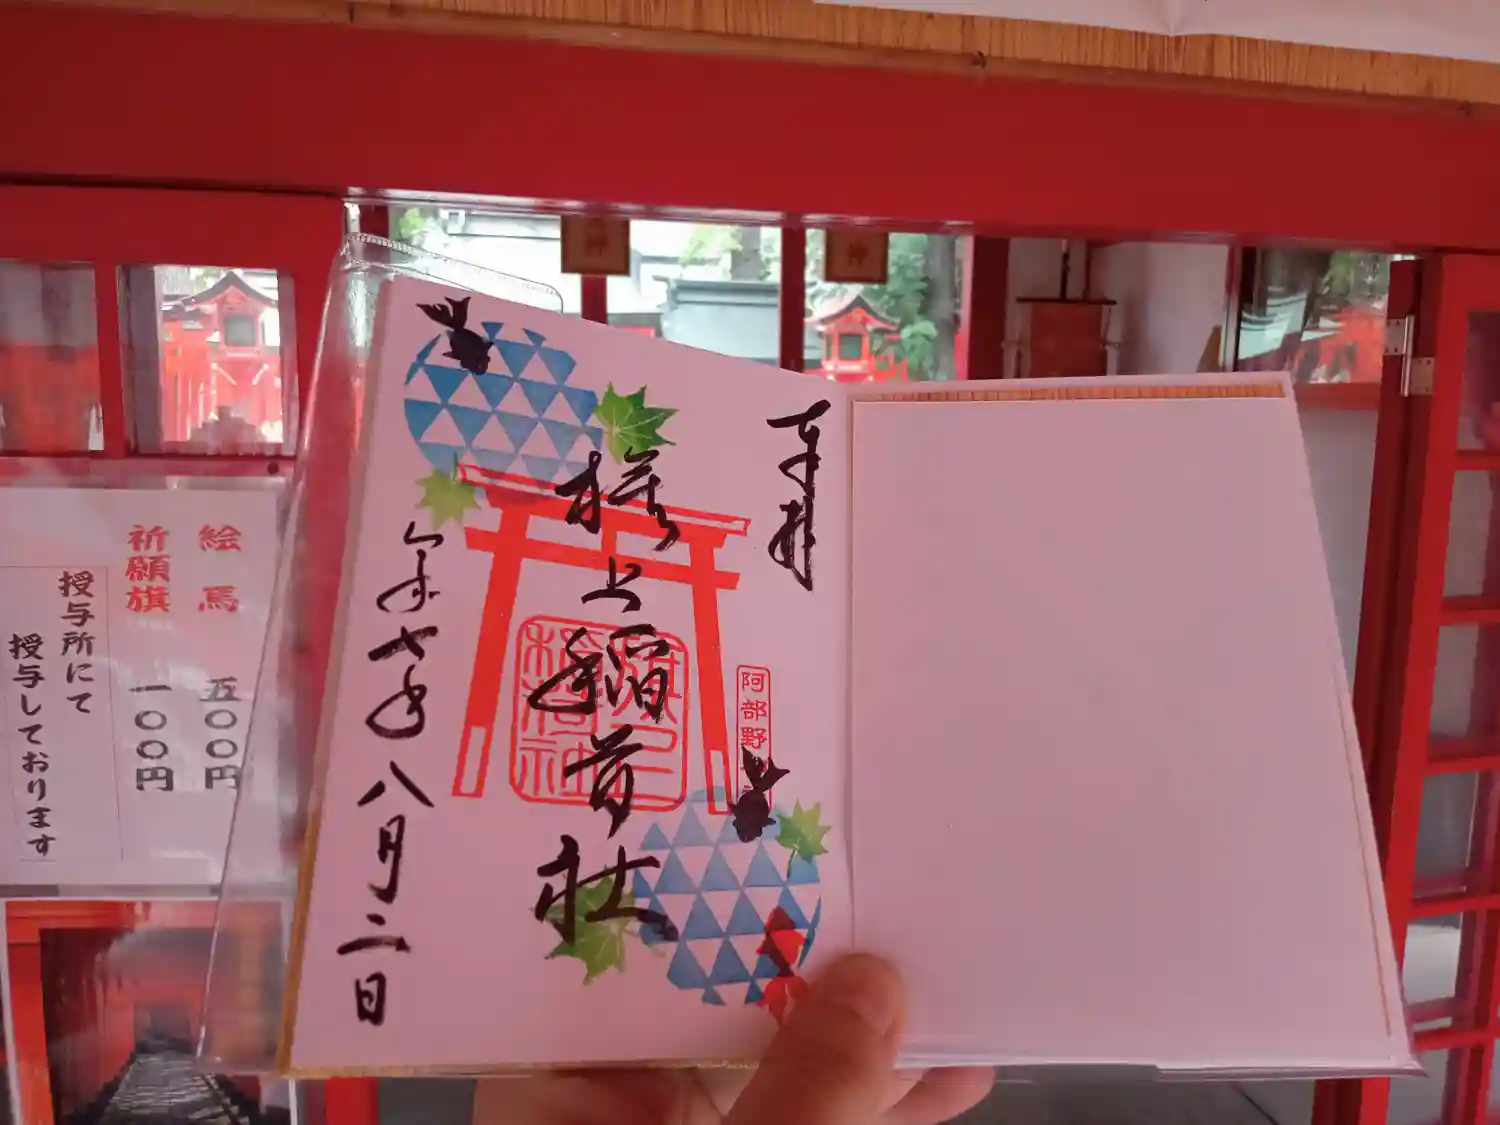 奉拝
旗上稲荷社
令和七年八月二日
阿部野
絵馬 五〇〇円
祈願旗 一〇〇円
授与所にて
授与しております